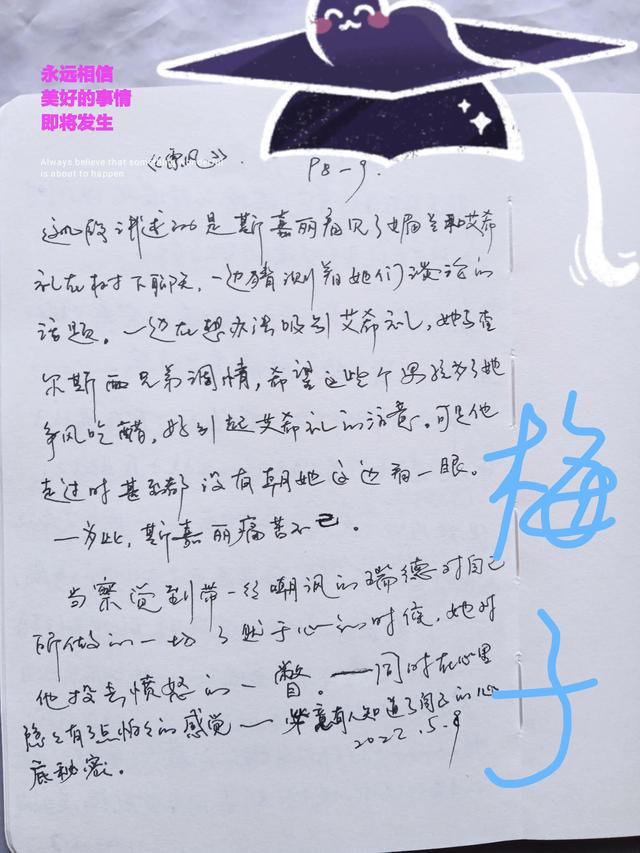 永远相信
美好的事情
即将发生
Always believe that something wonderful
is about to happen
《飘》. P8-9.
这几段讲述的是斯嘉丽看见了媚兰和艾希
礼在树下聊天,一边猜测着她们谈论的
话题。一边在想办法吸引艾希礼,她与查
尔斯两兄弟调情,希望这些个男孩为了她
争风吃醋,好引起艾希礼的注意。可是他
走过时甚至都没有朝她这边看一眼。
—为此,斯嘉丽痛苦不已。
当察觉到带一丝嘲讽的瑞德对自己
所做的一切了然于心的时候,她对
他投去愤怒的一瞥。—同时在心里
隐隐有了点怕怕的感觉—毕竟有人知道了自己的心
底秘密。
2022.5.8
梅
子